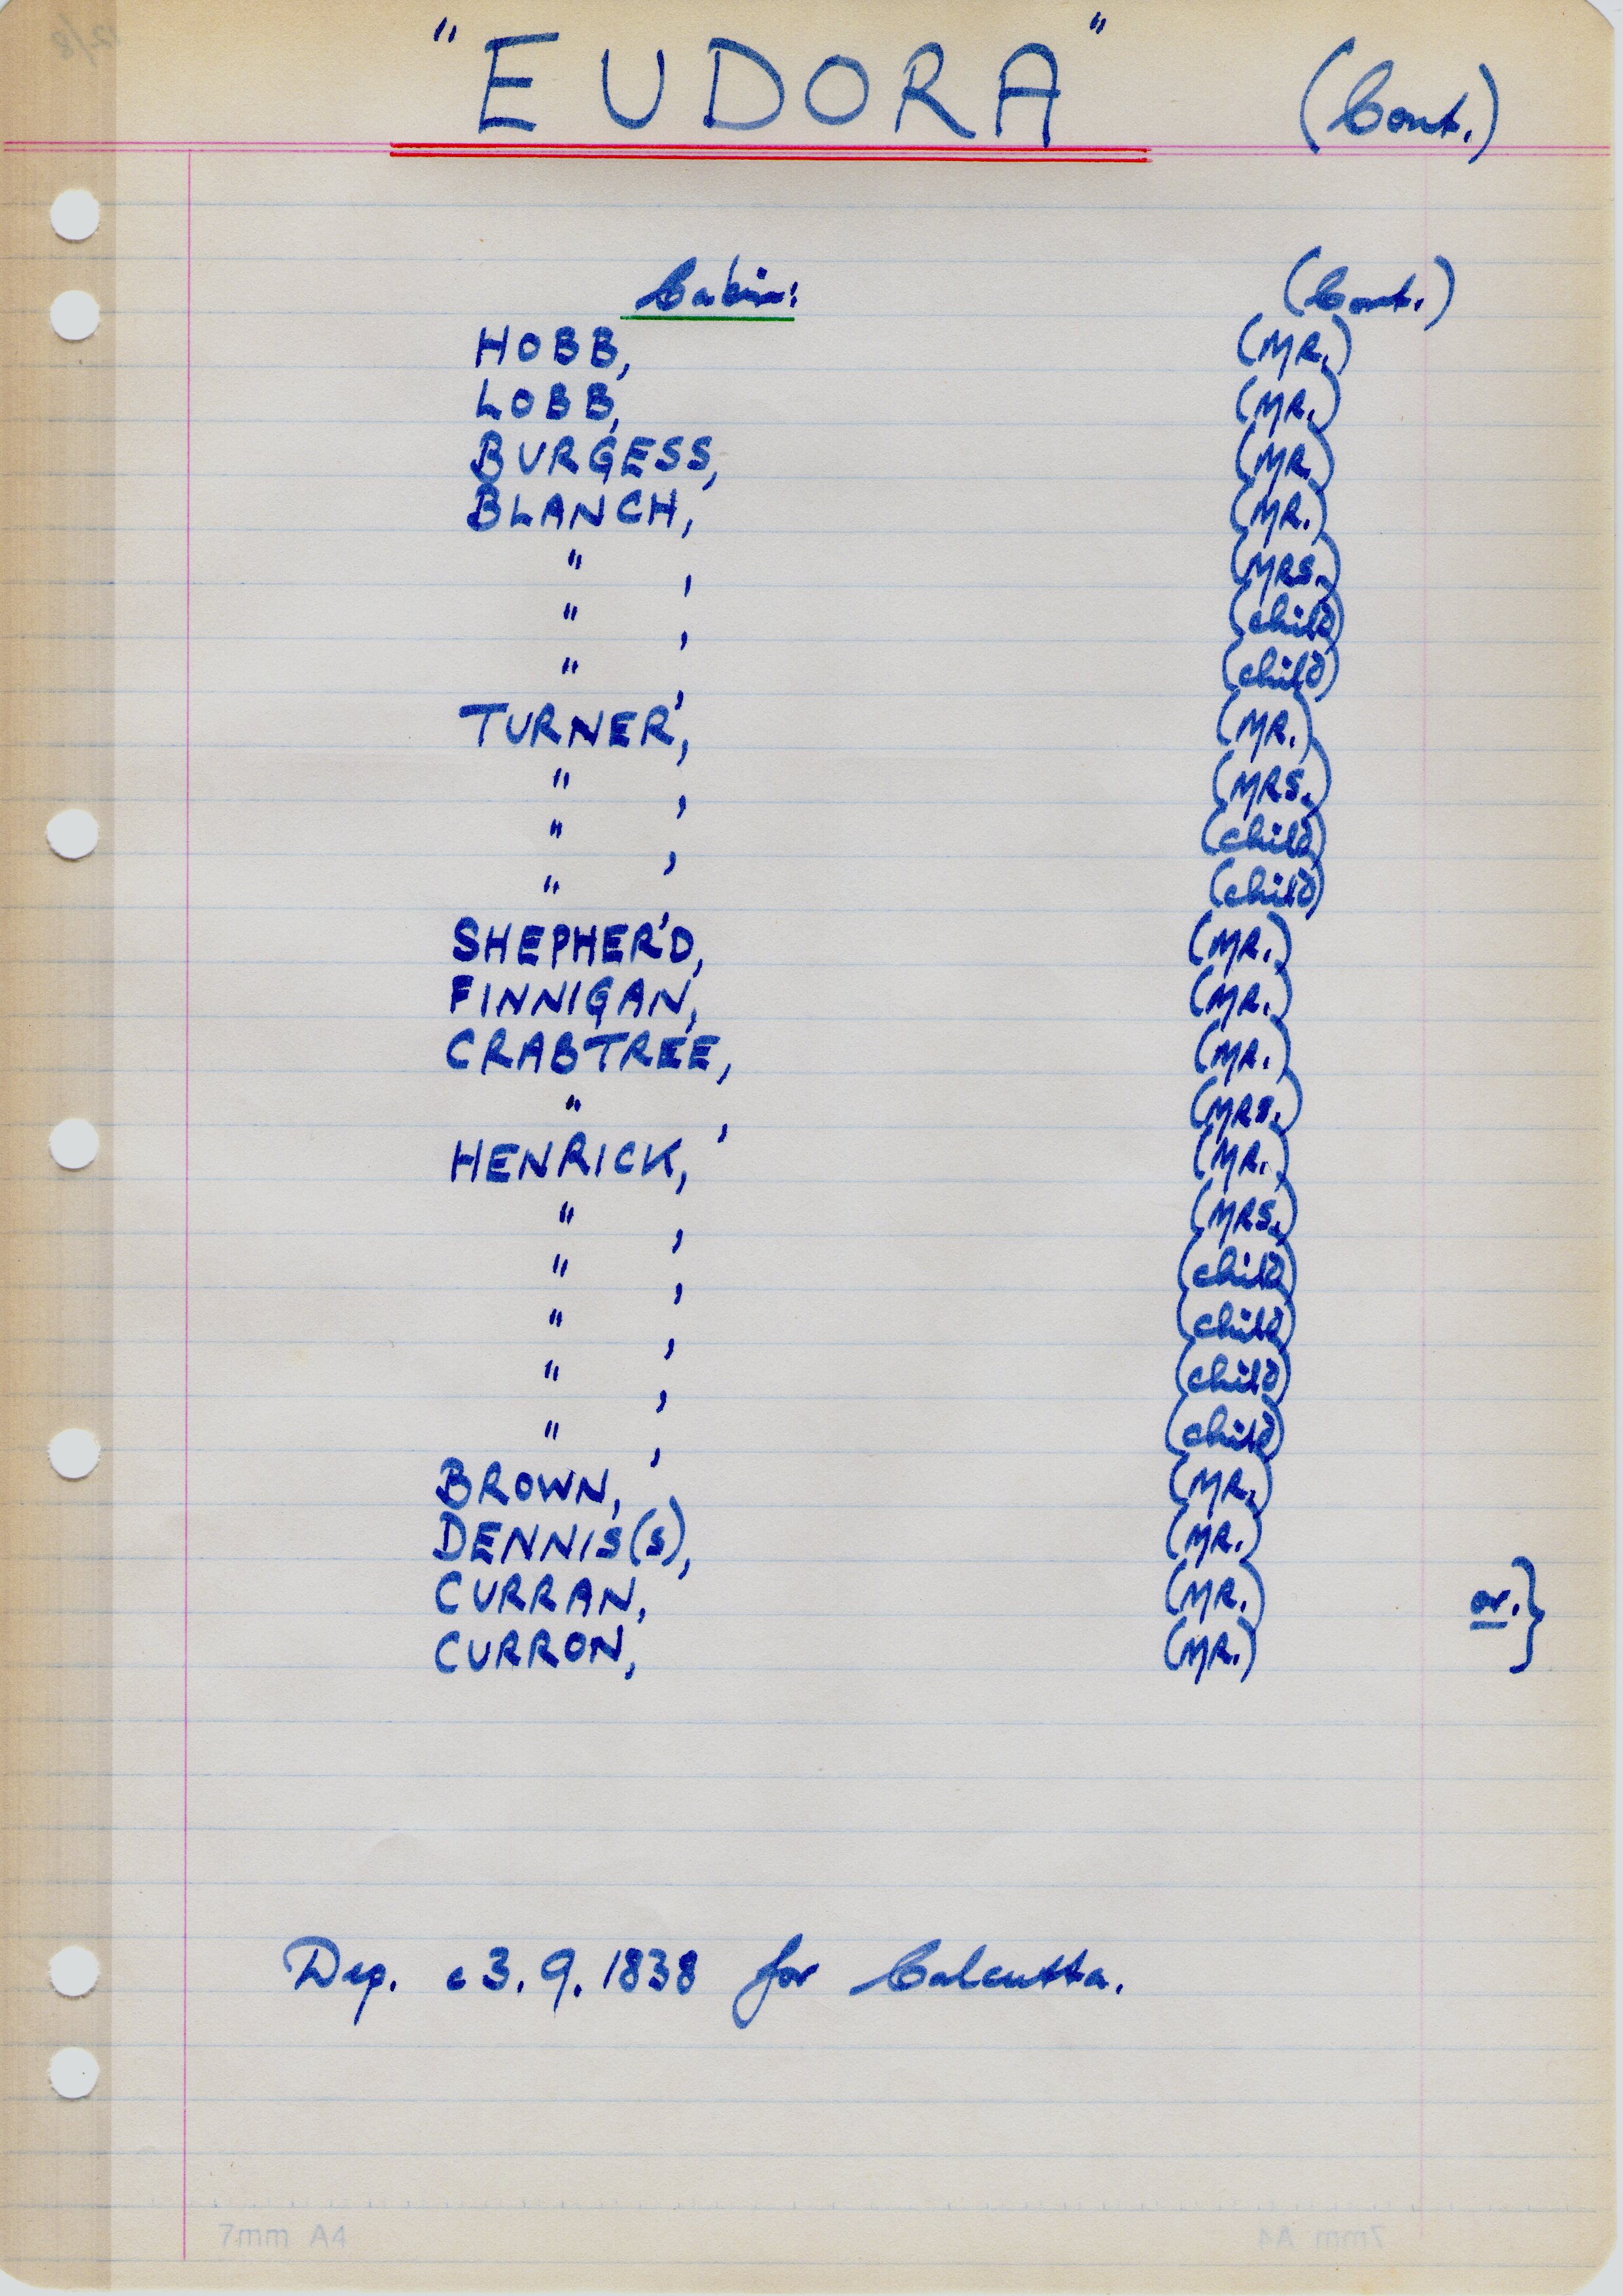 "EUDORA" (Cont.)
Cabin: (Cont.)
HOBB, (MR.)
LOBB, (MR.)
BURGESS, (MR.)
BLANCH, (MR.)
" , (MRS.)
" , (child)
" , (child)
TURNER, (MR.)
" , (MRS.)
" , (child)
" , (child)
SHEPHERD, (MR.)
FINNIGAN, (MR.)
CRABTREE, (MR.)
" , (MRS.)
HENRICK, (MR.)
" , (MRS.)
" , (child)
" , (child)
" , (child)
" , (child)
BROWN, (MR.)
DENNIS(S), (MR.)
CURRAN, (MR.) or. }
CURRON, (MR.)
Dep. c 3. 9. 1838 for Calcutta.
7mm A4